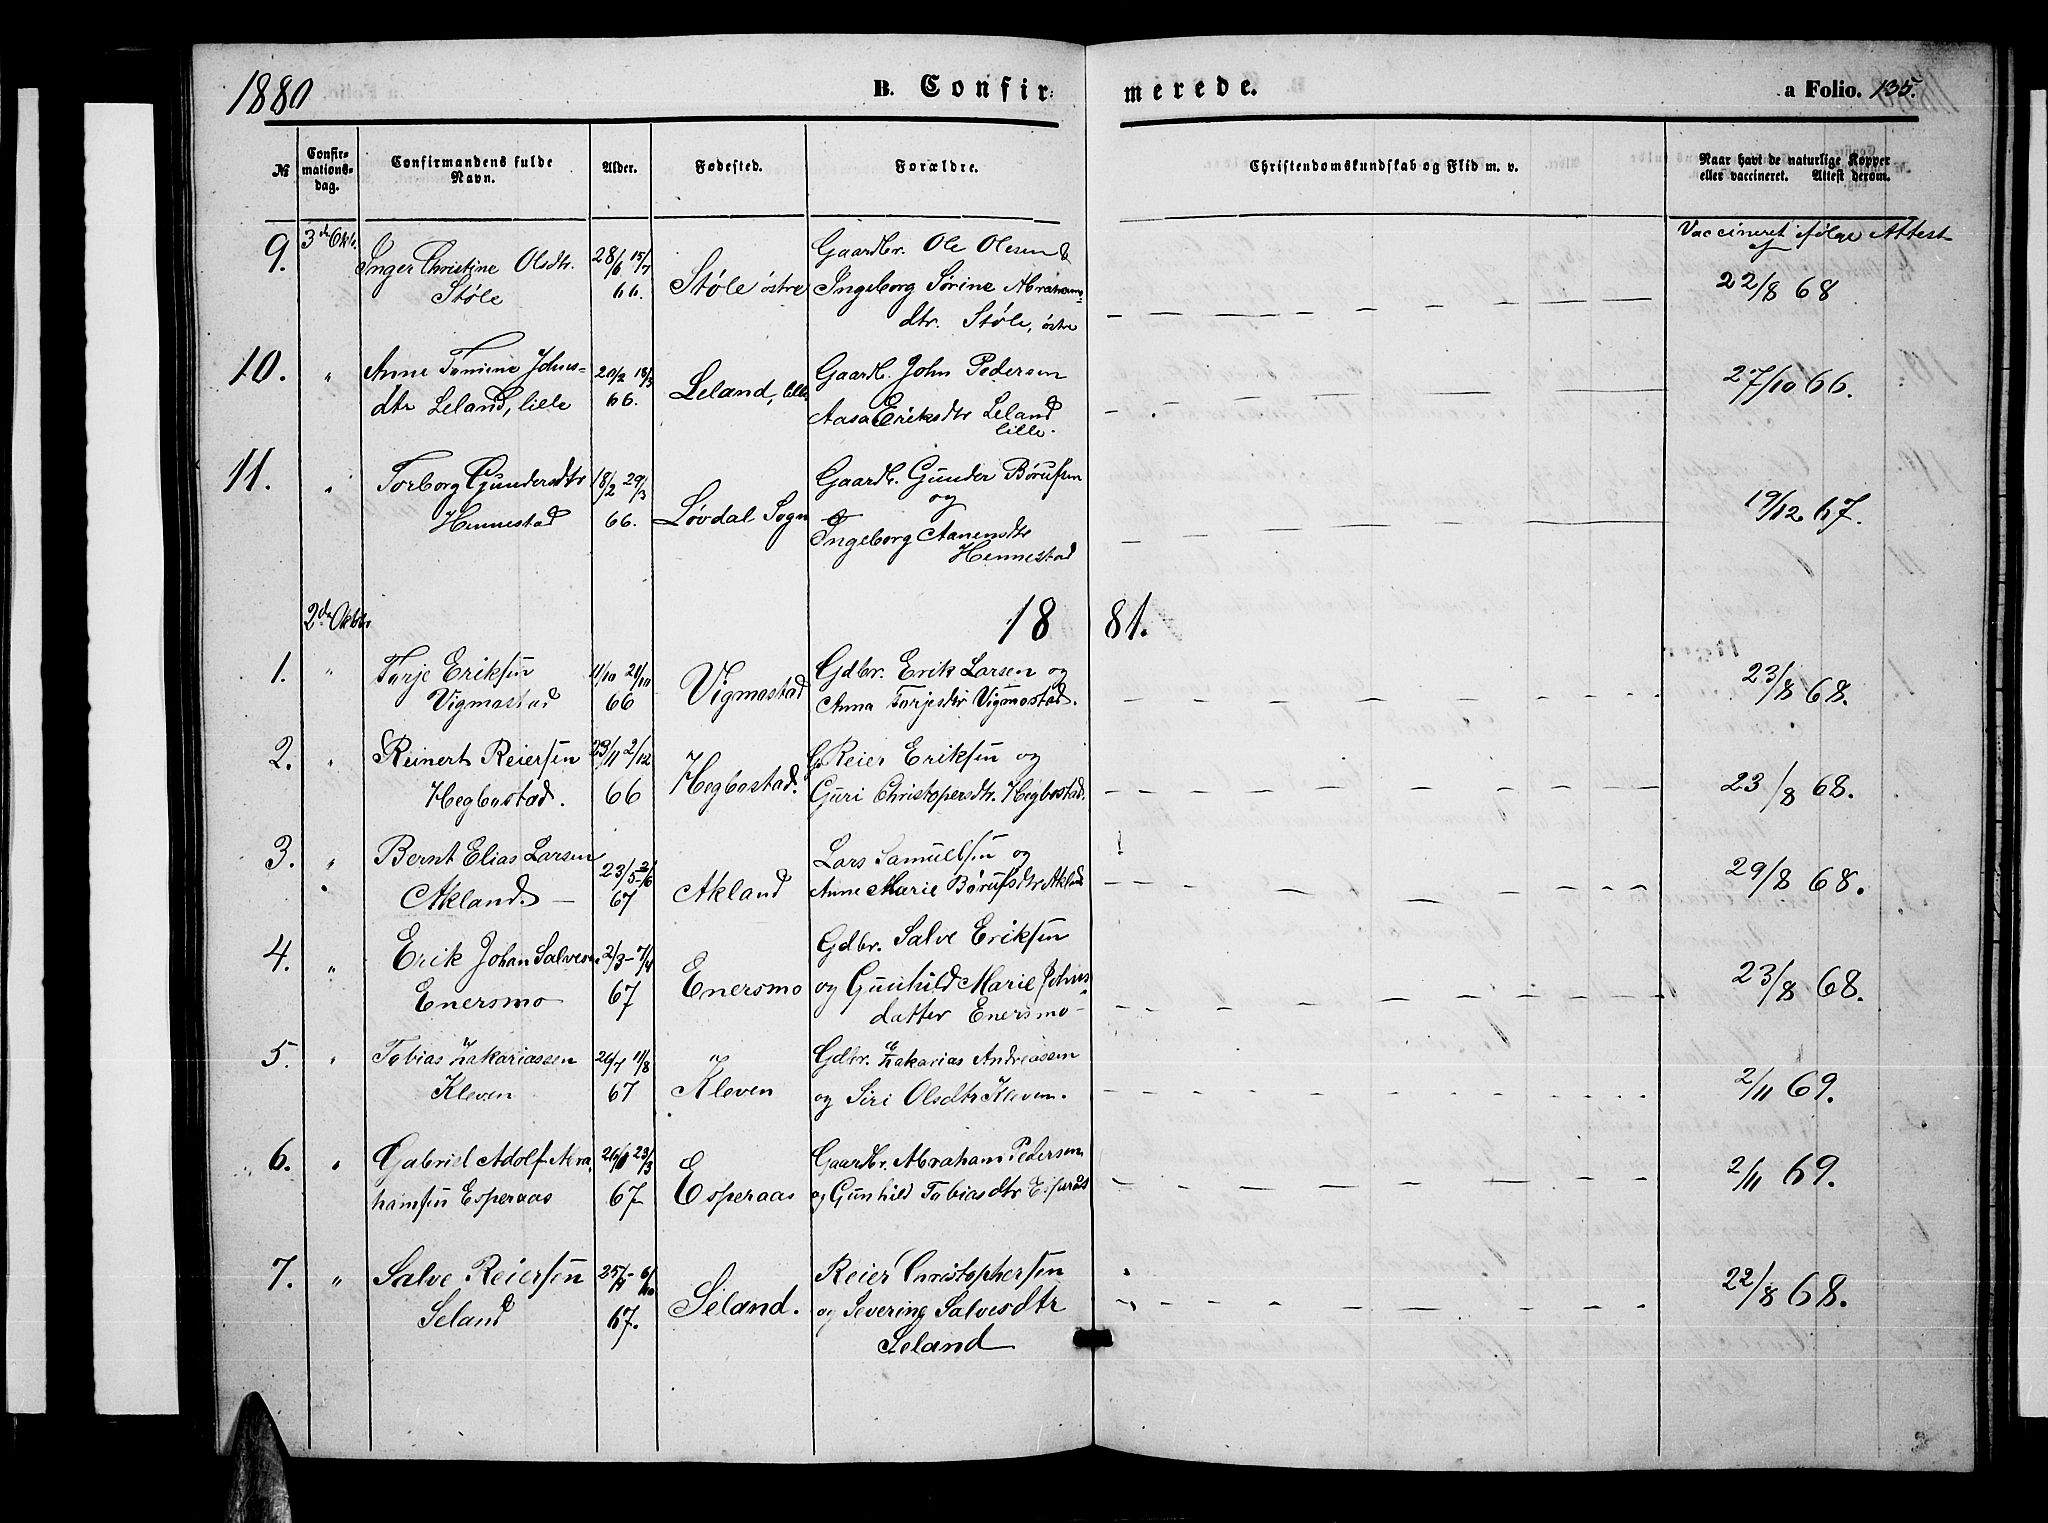 1880
B. Confirmerede.
a Folio. 135.
№
Confirmationsdag.
Confirmandens fulde Navn.
Alder.
Fødested.
Forældre.
Christendomskundskab og Flid m. v.
Naar havt de naturlige Kopper eller vaccineret. Attest derom.
Vaccineret ifølge Attest af
9. 3de Oktb.
Inger Christine Olsdtr.
Støle
28/6 15/7
66.
Støle østre
Gaardbr. Ole Olesen &
Ingeborg Sørine Abrahams-
dtr. Støle, østre
22/8 68
10. "
Anne Tomine Johns-
dtr Leland, lille
20/2 18/3
66.
Leland, lille
Gaardb. John Pedersen
Aasa Eriksdtr Leland
lille.
27/10 66.
11. "
Torborg Gundersdtr
Hennestad
18/2 29/3
66.
Løvdal Sogn
Gaardb. Gunder Børufsen
og
Ingeborg Aanensdtr
Hennestad
19/12 67.
2den Oktbr
1881.
1. "
Torje Eriksen
Vigmostad
11/10 21/10
66
Vigmostad
Gdbr. Erik Larsen og
Anna Torjesdtr Vigmostad.
23/8 68.
2. "
Reinert Reiersen
Hegbostad.
23/11 2/12
66
Hegbostad.
G. Reier Eriksen og
Guri Christopersdtr. Hegbostad.
23/8 68.
3. "
Bernt Elias Larsen
Akland.
23/5 2/6
67
Akland
Lars Samuelsen og
Anne Marie Børufsdtr Akland
29/8 68.
4. "
Erik Johan Salvesen
Enersmo
2/3 - 7/4
67
Enersmo
Gdbr. Salve Eriksen
og Gunhild Marie Johns-
datter Enersmo
23/8 68.
5. "
Tobias Zakariassen
Kleven
20/7 11/8
67
Kleven
Gdbr. Zakarias Andreasen
og Siri Olsdtr Kleven.
2/11 69.
6. "
Gabriel Adolf Abra-
hamsen Esperaas
23/3
67
Esperaas
Gaardbr. Abraham Pedersen
og Gunhild Tobiasdtr Esperaas
2/11 69.
7. "
Salve Reiersen
Seland
67.
Seland.
Reier Christophersen
og Severine Salvesdtr
Seland
22/8 68.